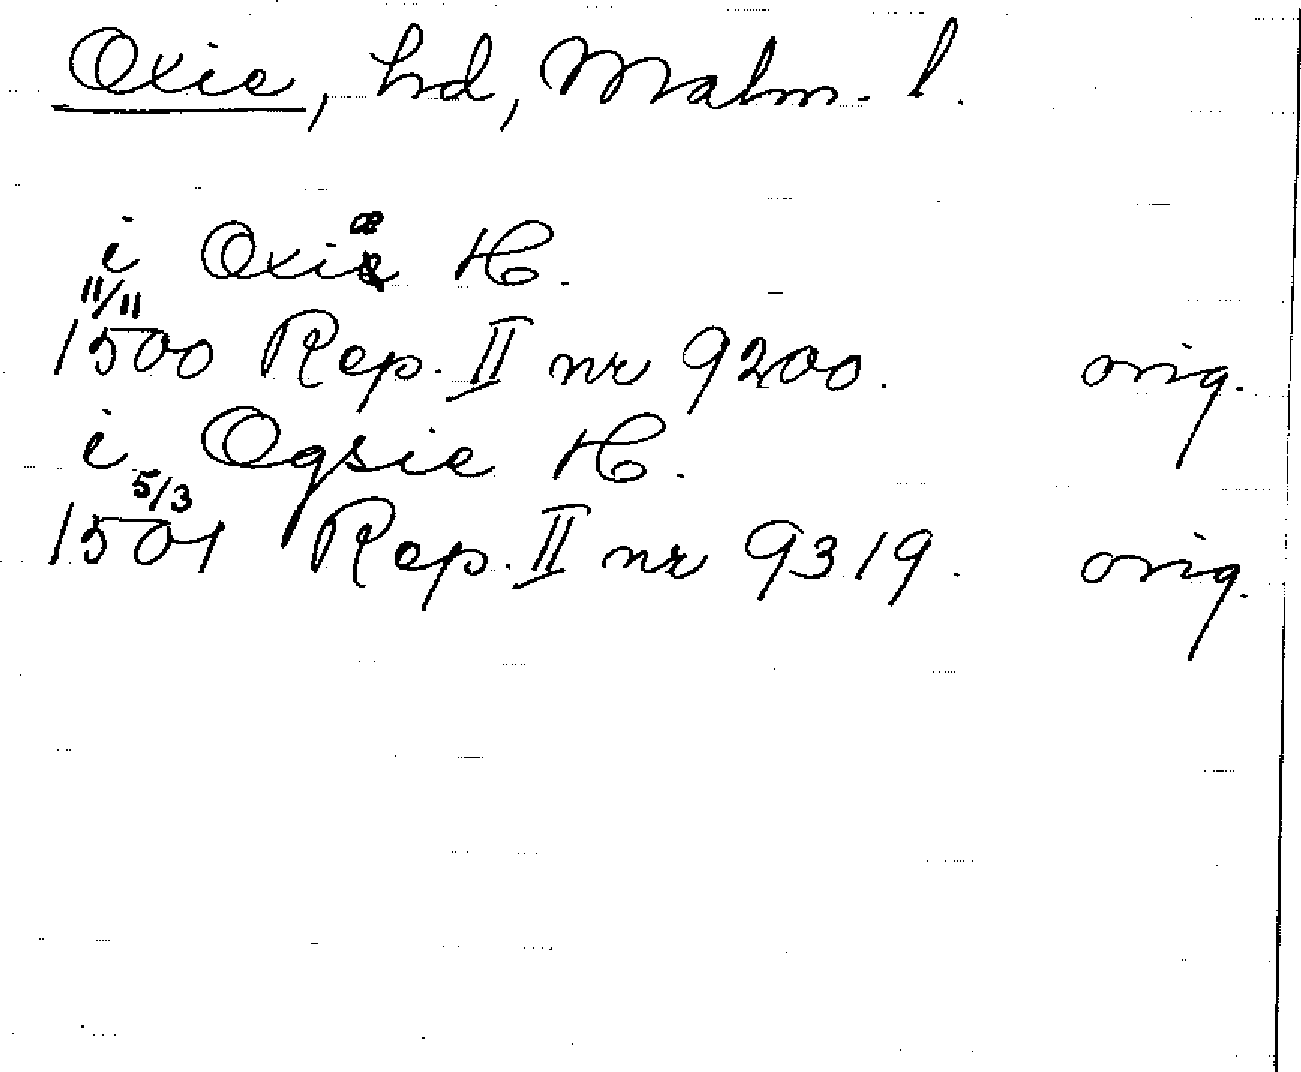 Oxie, hd, Malm. l.
i Oxiæ H.
11/11
1500 Rep. II nr 9200. orig.
i Ogsie H.
5/3
1501 Rep. II nr 9319. orig.